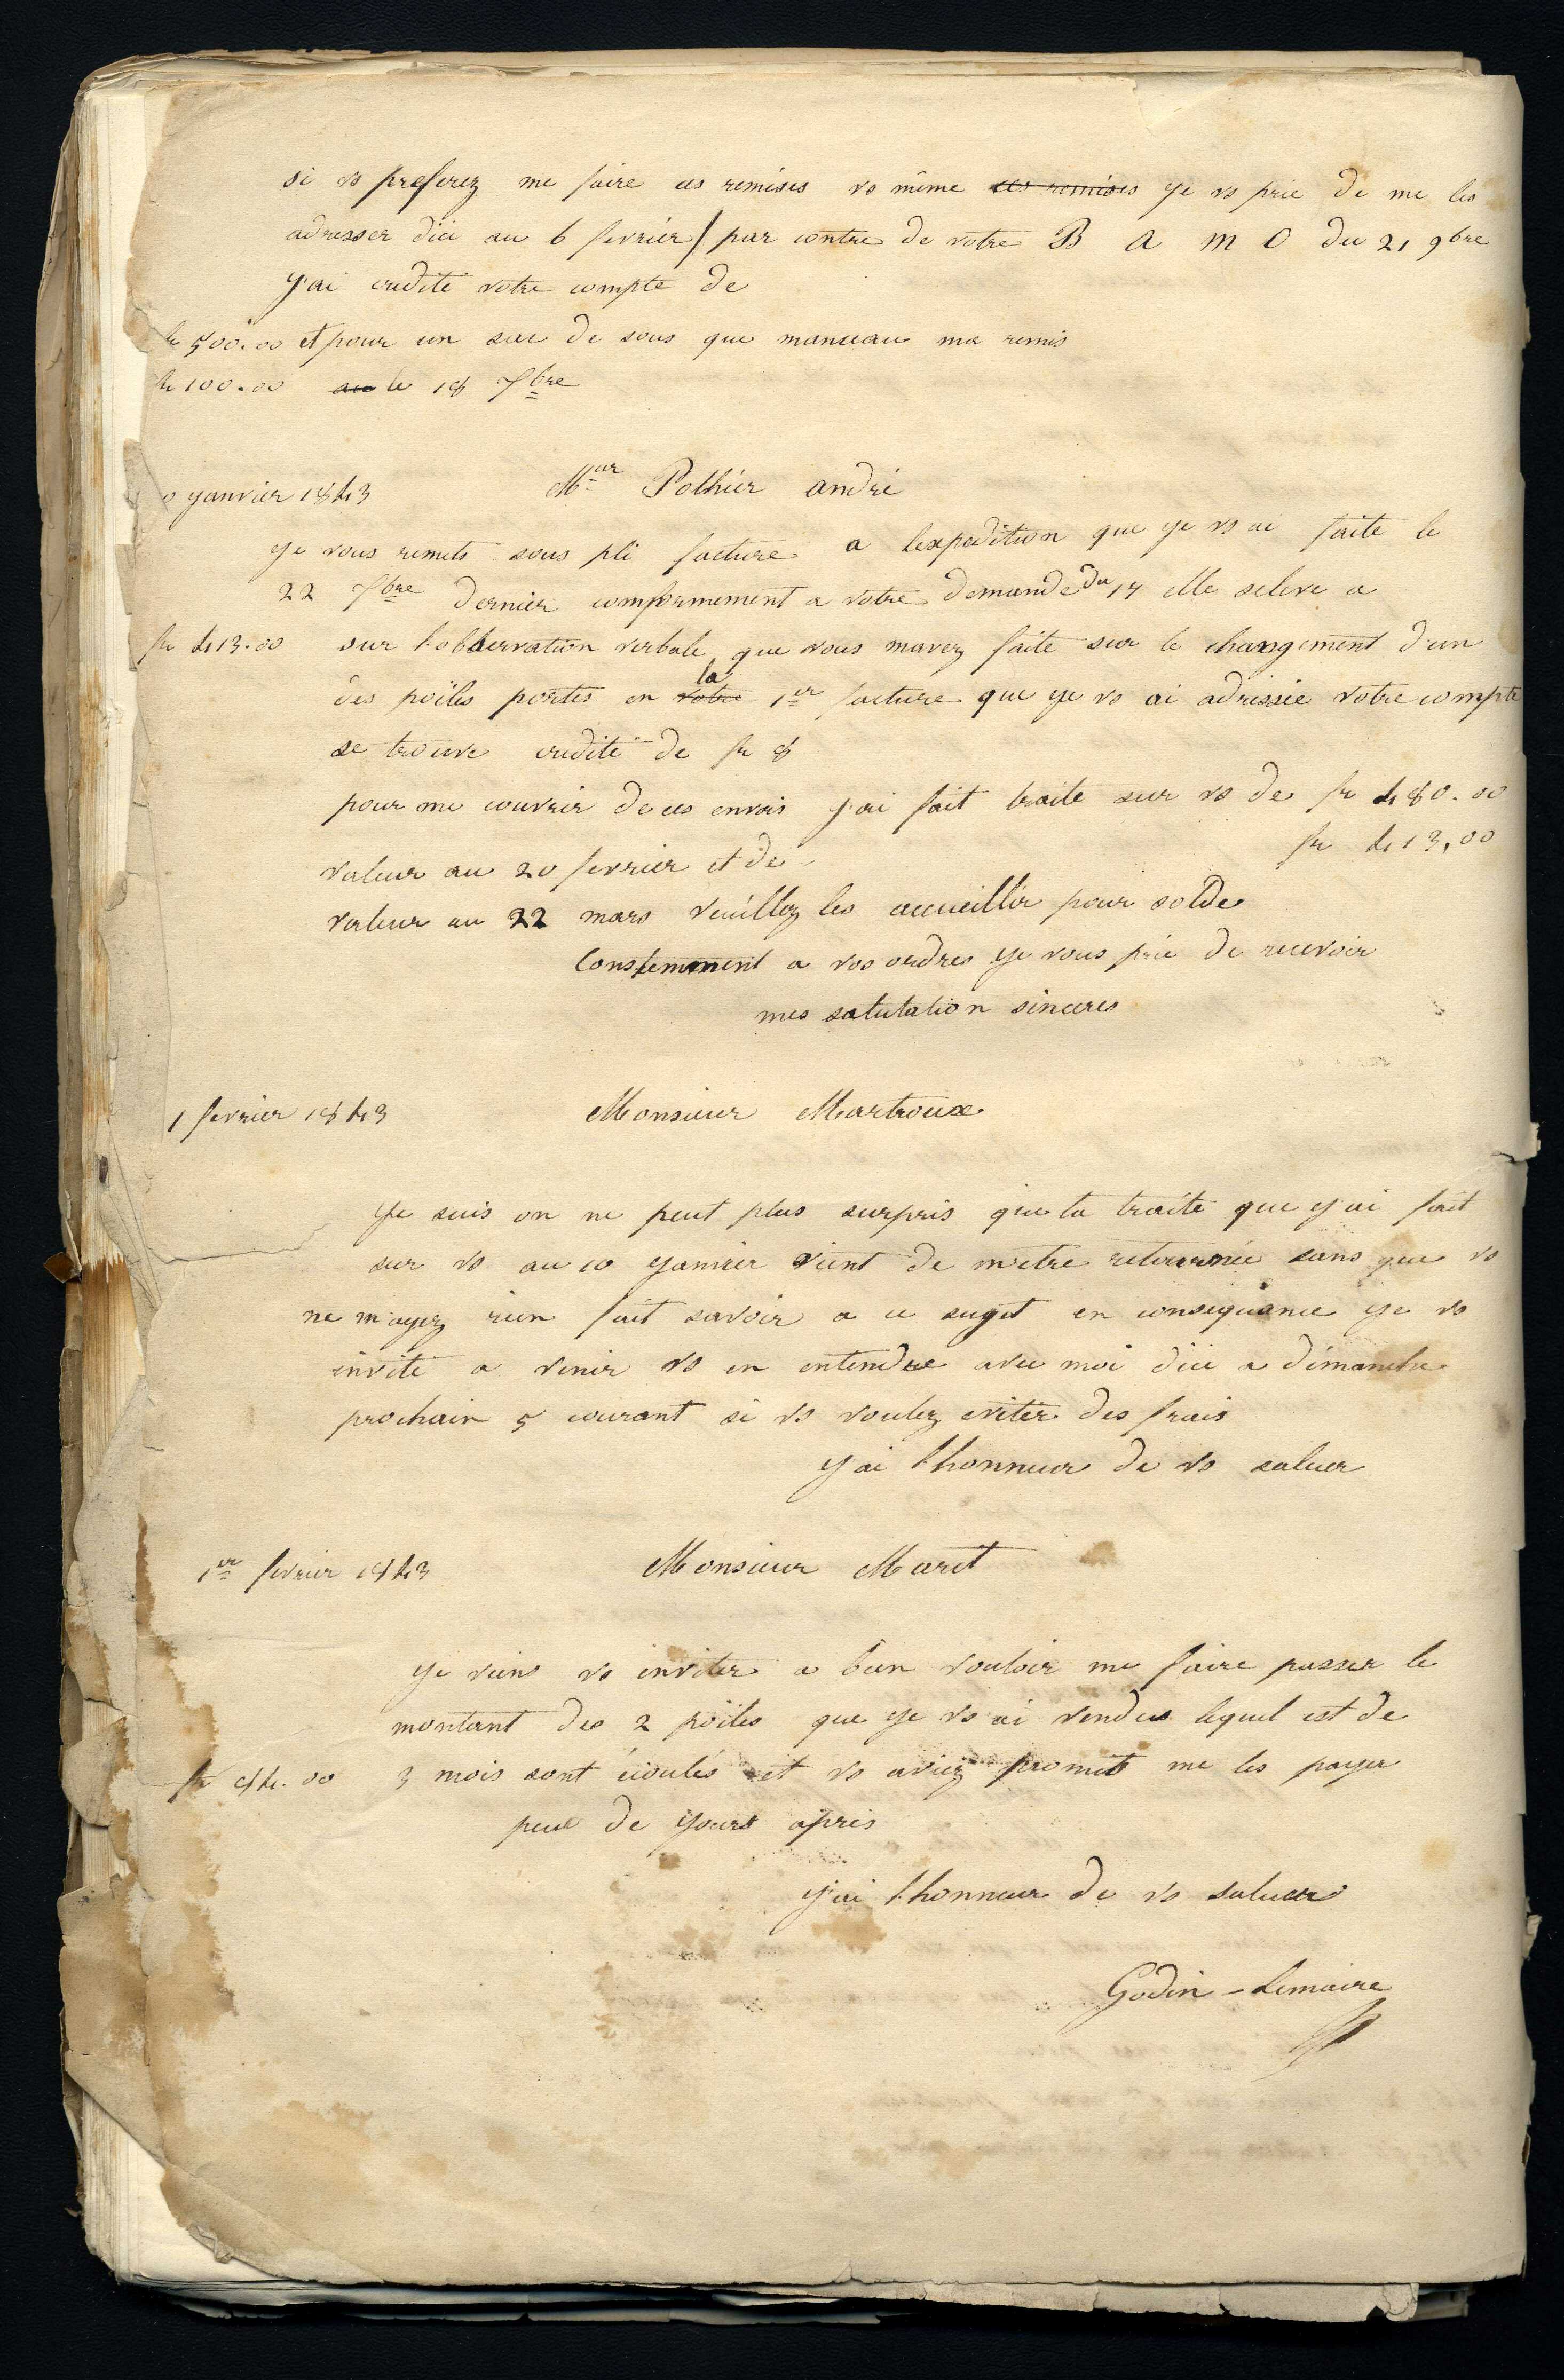 si vs preferez me faire ces remises vs même ces remises ye vs prie de me les
adresser dici au 6 fevrier / par contre de votre B a m O du 21 9bre
y'ai credité votre compte de
fr 500.00 et pour un sac de sous que manseau ma remis
fr 100.00 au le 18 7bre
0 yanvier 1843
Mar Pothier andré
ye vous remets sous pli facture a lexpedition que ye vs ai faite le
22 7bre dernier comformement a votre demande du 17 elle seleve a
fr 413.00 sur l'obbservation verbale que vous mavez faite sur le changement d'un
des poëles portés en votre la 1er facture que ye vs ai adressée votre compte
se trouve credité de fr 8
pour me couvrir de ces envois y'ai fait traite sur vs de fr 480.00
valeur au 20 fevrier et de fr 413,00
valeur au 22 mars veuillez les accueillir pour solde
Constemment a vos ordres ye vous prie de recevoir
mes salutation sinceres
1 fevrier 1843
Monsieur Martroux
Ye suis on ne peut plus surpris que la traite que y'ai fait
sur vs au 10 yanvier vient de m'etre retournée sans que vs
ne m'ayez rien fait savoir a ce suget en consequance ye vs
invite a venir vs en entendre avec moi d'ici a dimanche
prochain 5 courant si vs voulez eviter des frais
y'ai l'honneur de vs saluer
1er fevrier 1843
Monsieur Maret
ye viens vs inviter a bien vouloir me faire passer le
montant des 2 poëles que ye vs ai vendus lequel est de
fr 84.00 3 mois sont écoulés et vs aviez promit me les payer
peu de yours apres
y'ai l'honneur de vs saluer
Godin-Lemaire